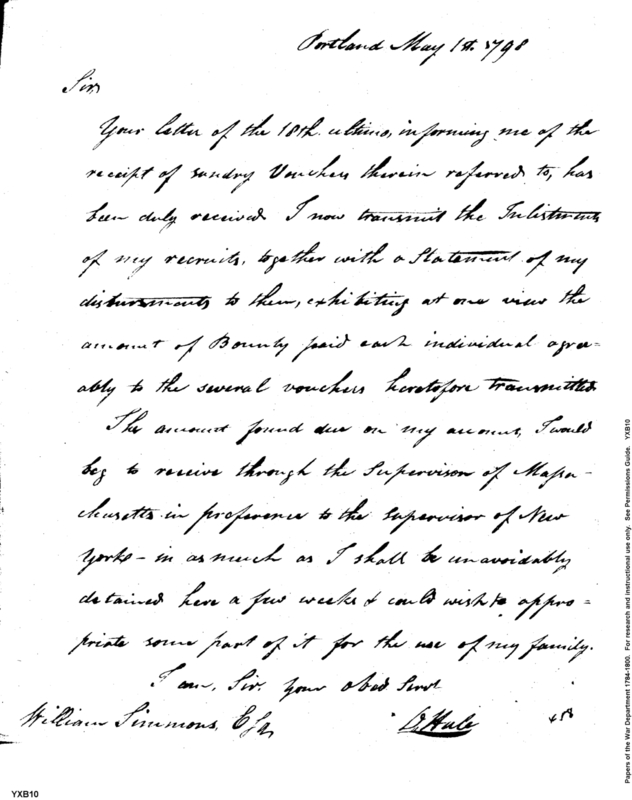 Portland May 1st. 1798
Sir,
Your letter of the 18th. ultimo, informing me of the
receipt of sundry Vouchers therein referred to, has
been duly received. I now transmit the Inlistments
of my recruits, together with a Statement of my
disbursments to them, exhibiting at one view the
amount of Bounty paid each individual agree=
ably to the several vouchers heretofore transmitted.
The amount found due on my account, I would
beg to receive through the Supervisor of Massa-
chusetts in preference to the supervisor of New
York - in as much as I shall be unavoidably
detained here a few weeks & could wish to appro=
priate some part of it for the use of my family.
I am, Sir, your obed. Servt
William Simmons, Esq. Hale
YXB10
Papers of the War Department 1784-1800. For research and instructional use only. See Permissions Guide. YXB10